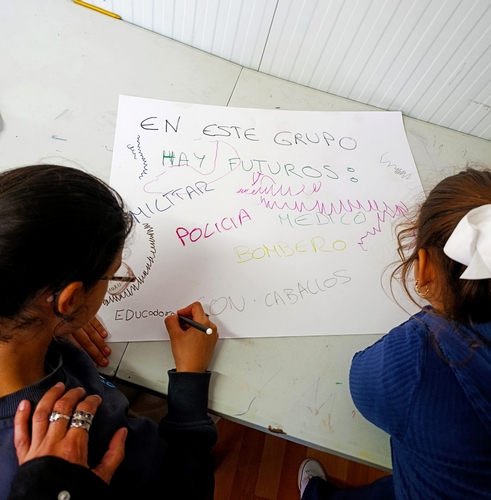 EN ESTE GRUPO
HAY FUTUROS:
MILITAR
POLICIA MEDICO
BOMBERO
CON-CABALLOS
EDUCadora